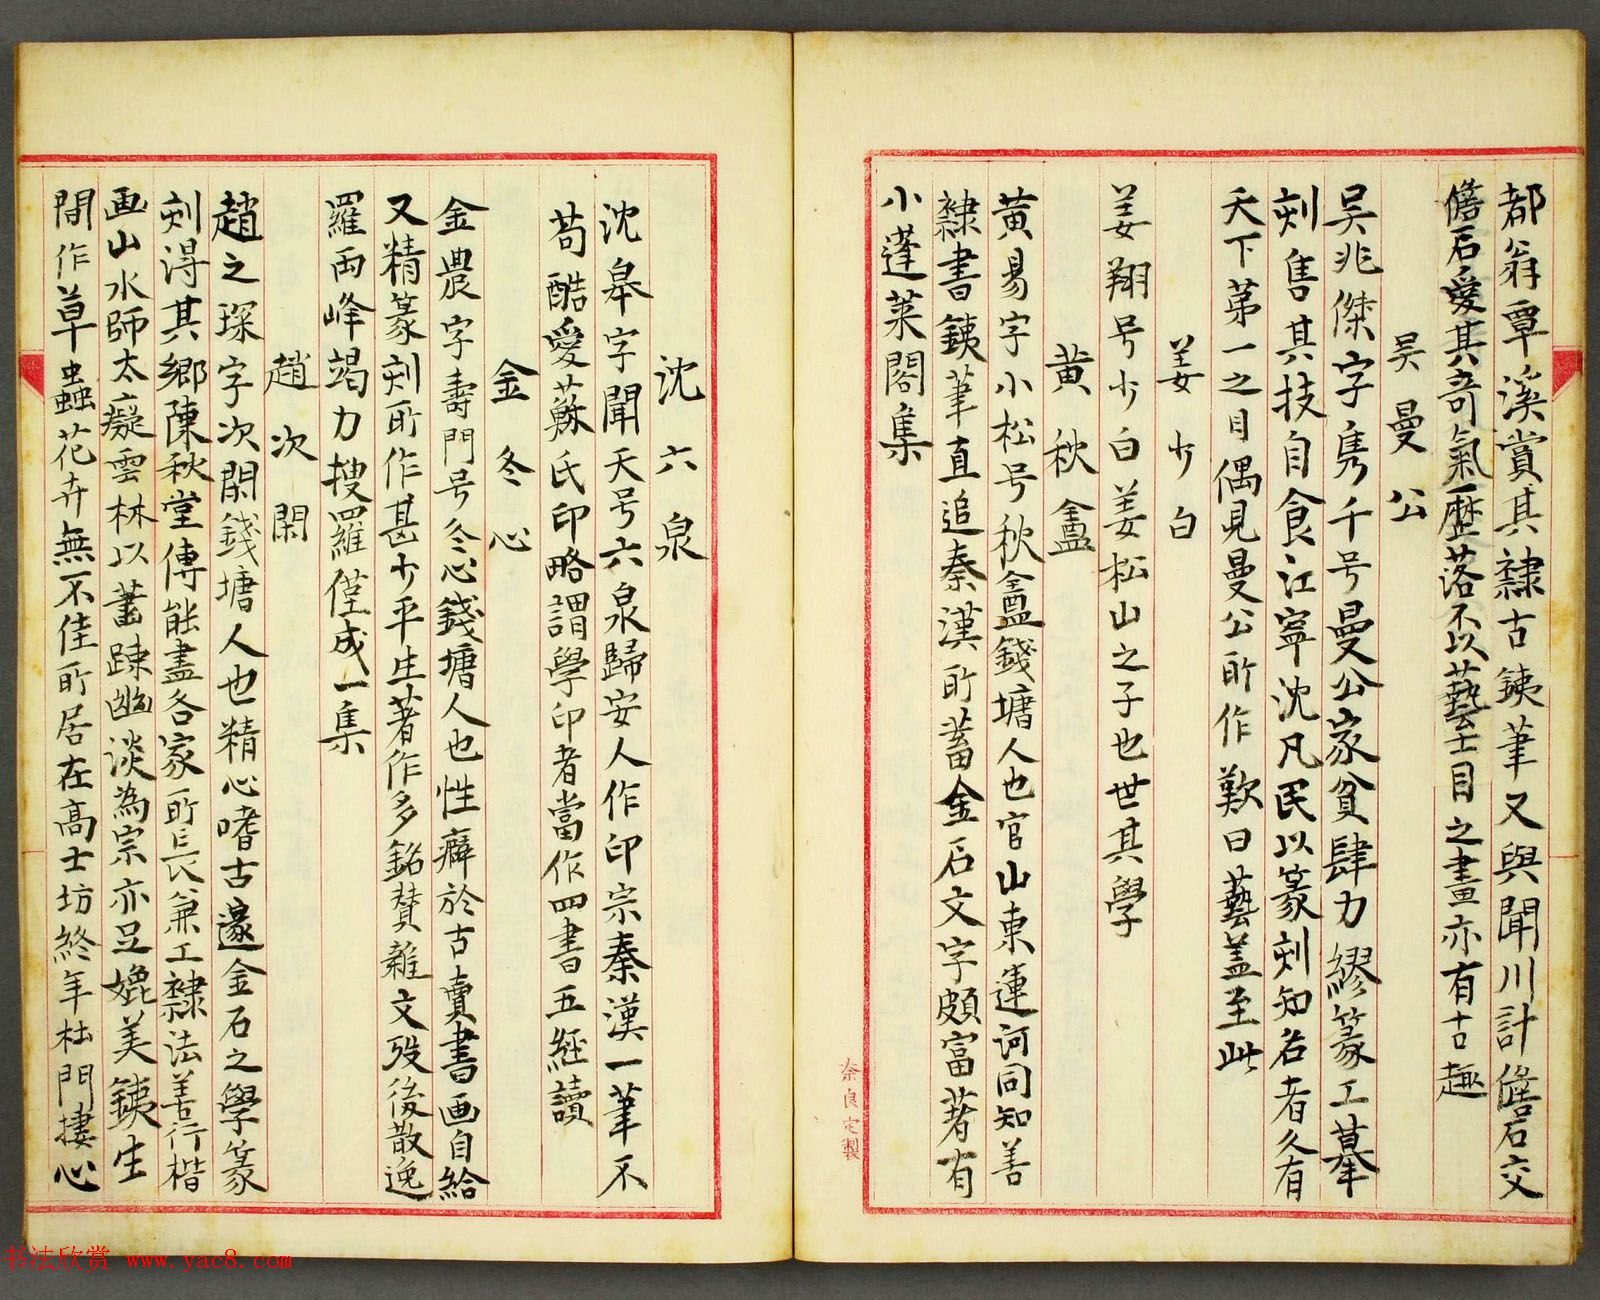 都翁覃溪賞其隸古鐵筆又與聞川計儋石交
儋石愛其奇氣歷落不以藝士目之畫亦有古趣
吴曼公
吴兆傑字雋千号曼公家貧肆力繆篆工摹
刻售其技自食江寧沈凡民以篆刻知名者久有
天下第一之目偶見曼公所作歎曰藝盖至此
姜少白
姜翔号少白姜松山之子也世其學
黄秋盦
黄易字小松号秋盦錢塘人也官山東運河同知善
隸書鐵筆直追秦漢所蓄金石文字頗富著有
小蓬萊閣集
沈六泉
沈皋字聞天号六泉歸安人作印宗秦漢一筆不
苟酷愛蘇氏印略謂學印者當作四書五經讀
金冬心
金農字壽門号冬心錢塘人也性癖於古賣書画自給
又精篆刻所作甚少平生著作多銘賛雜文歿後散逸
羅两峰竭力搜羅僅成一集
趙次閑
趙之琛字次閑錢塘人也精心嗜古邃金石之學篆
刻得其鄉陳秋堂傳能盡各家所長兼工隸法善行楷
画山水師太癡雲林以蕭疎幽淡為宗亦足媲美鐵生
間作草蟲花卉無不佳所居在高士坊終年杜門摟心
奈良定製
书法欣赏 www.yac8.com